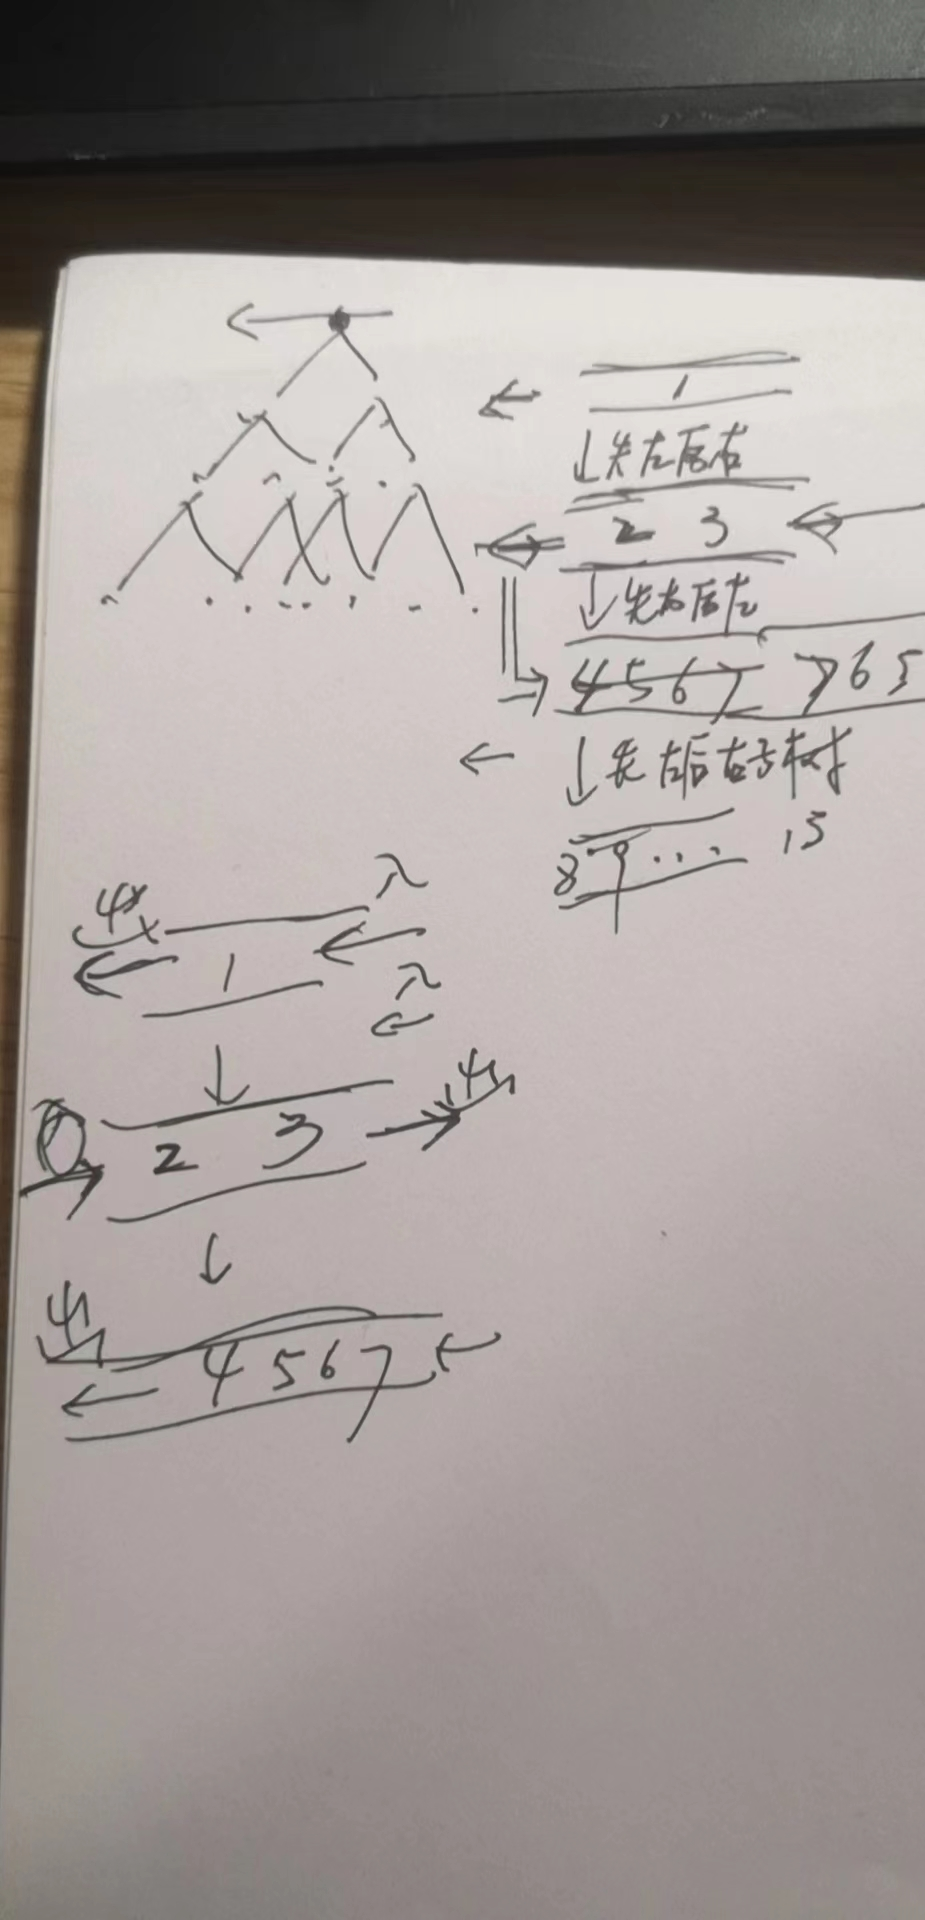 1
先左后右
2 3
先右后左
4 5 6 7 7 6 5
先左后右子树
8 9 ... 15
收
入
1
入
2 3
收
收
4 5 6 7